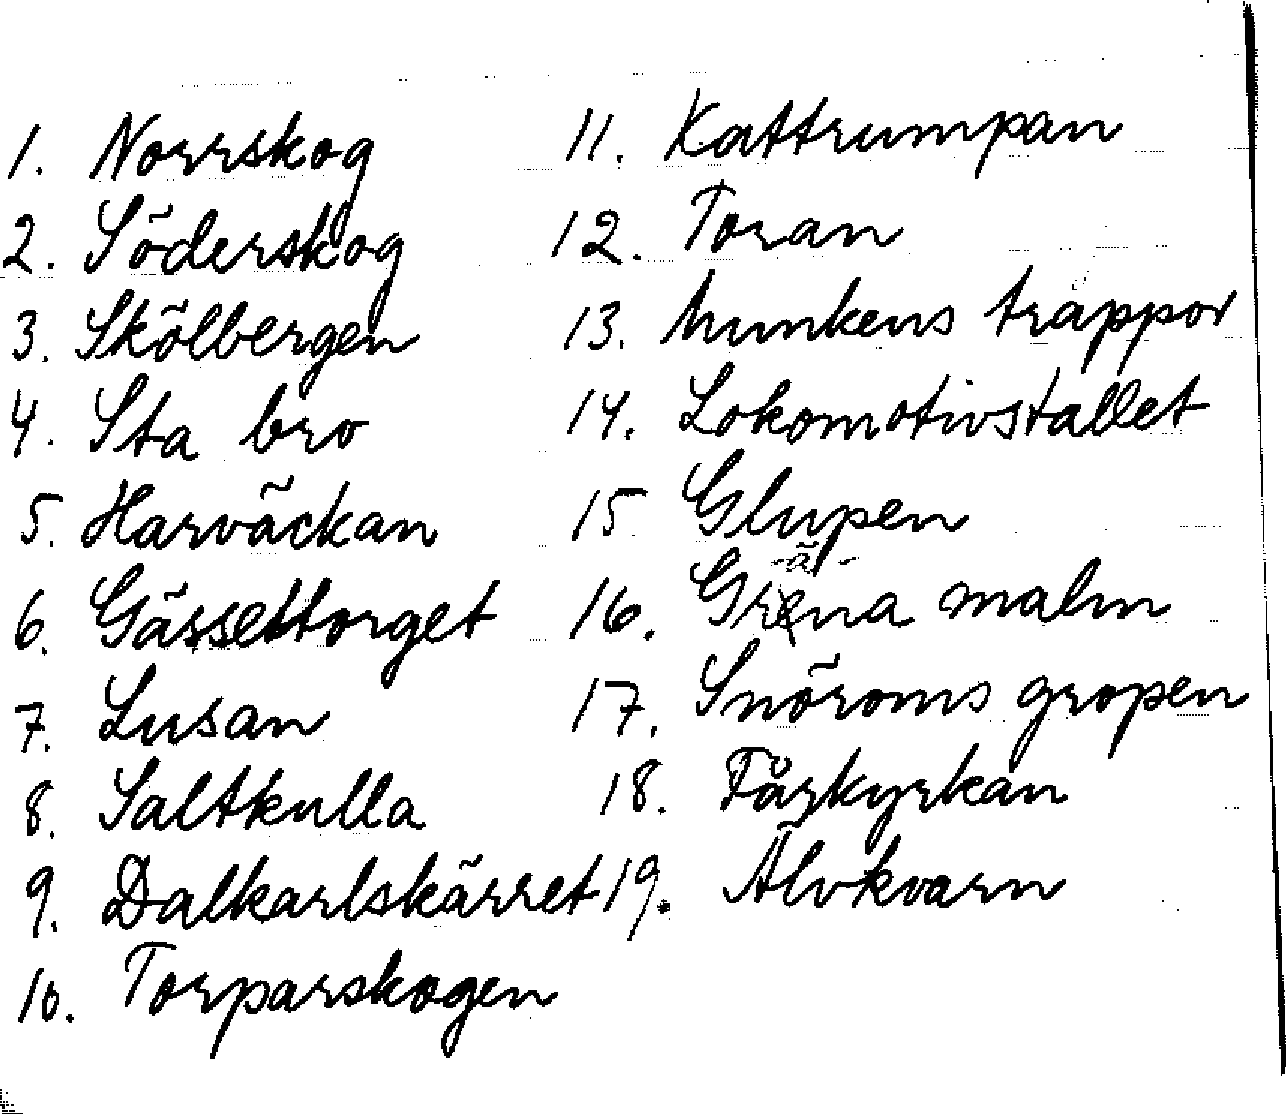 1. Norrskog
2. Söderskog
3. Skölbergen
4. Sta bro
5. Harväckan
6. Gässeltorget
7. Lusan
8. Saltkulla
9. Dalkarlskärret
10. Torparskogen
11. Kattrumpan
12. Toran
13. Munkens trappor
14. Lokomotivstallet
15 Glupen
-ä-
16. Grena malm
17. Snöroms gropen
18. Fårkyrkan
19. Älvkvarn